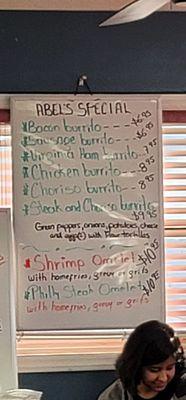 ABEL'S SPECIAL
*Bacon burrito --- $6.95
*Sausage burrito --- $6.95
*Virginia Ham burrito - 7.95
*Chicken burrito --- 8.95
*Choriso burrito --- 8.95
*Steak and Choriso burrito
$9.95
Green peppers, onions, potatoes, cheese
and egg(s) with flour tortillas
*Shrimp Omelet $10.95
with homefries, gravy or grits
*Philly Steak Omelet $10.95
with homefries, gravy or grits